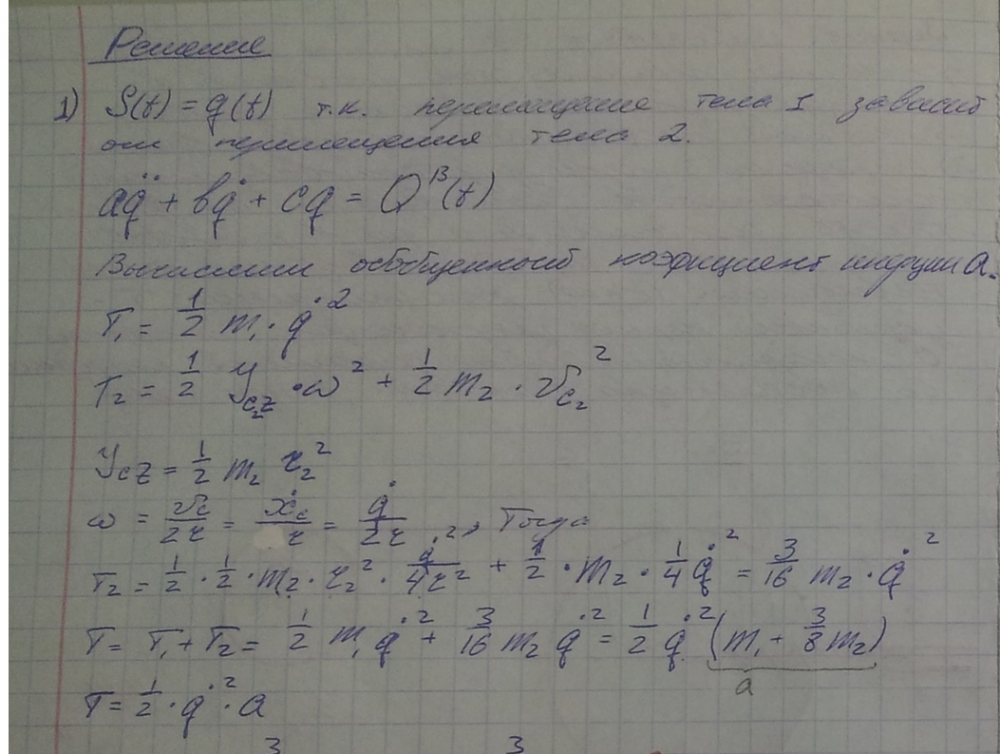 Решение
1) S(t) = q(t) т.к. перемещение тела 1 зависит
от перемещения тела 2.
aq̈ + bq̇ + cq = Q^B(t)
Вычислим обобщенный коэфициент инерции a.
T₁ = 1/2 m₁ · q̇²
T₂ = 1/2 J_{c₂z} · ω² + 1/2 m₂ · v_{c₂}²
J_{cz} = 1/2 m₂ r₂²
ω = v_c/2r = ẋ_c/r = q̇/2r, Тогда
T₂ = 1/2 · 1/2 · m₂ · r₂² · q̇²/4r² + 1/2 · m₂ · 1/4 q̇² = 3/16 m₂ · q̇²
T = T₁ + T₂ = 1/2 m₁ q̇² + 3/16 m₂ q̇² = 1/2 q̇² (m₁ + 3/8 m₂)
a
T = 1/2 · q̇² · a
3 3